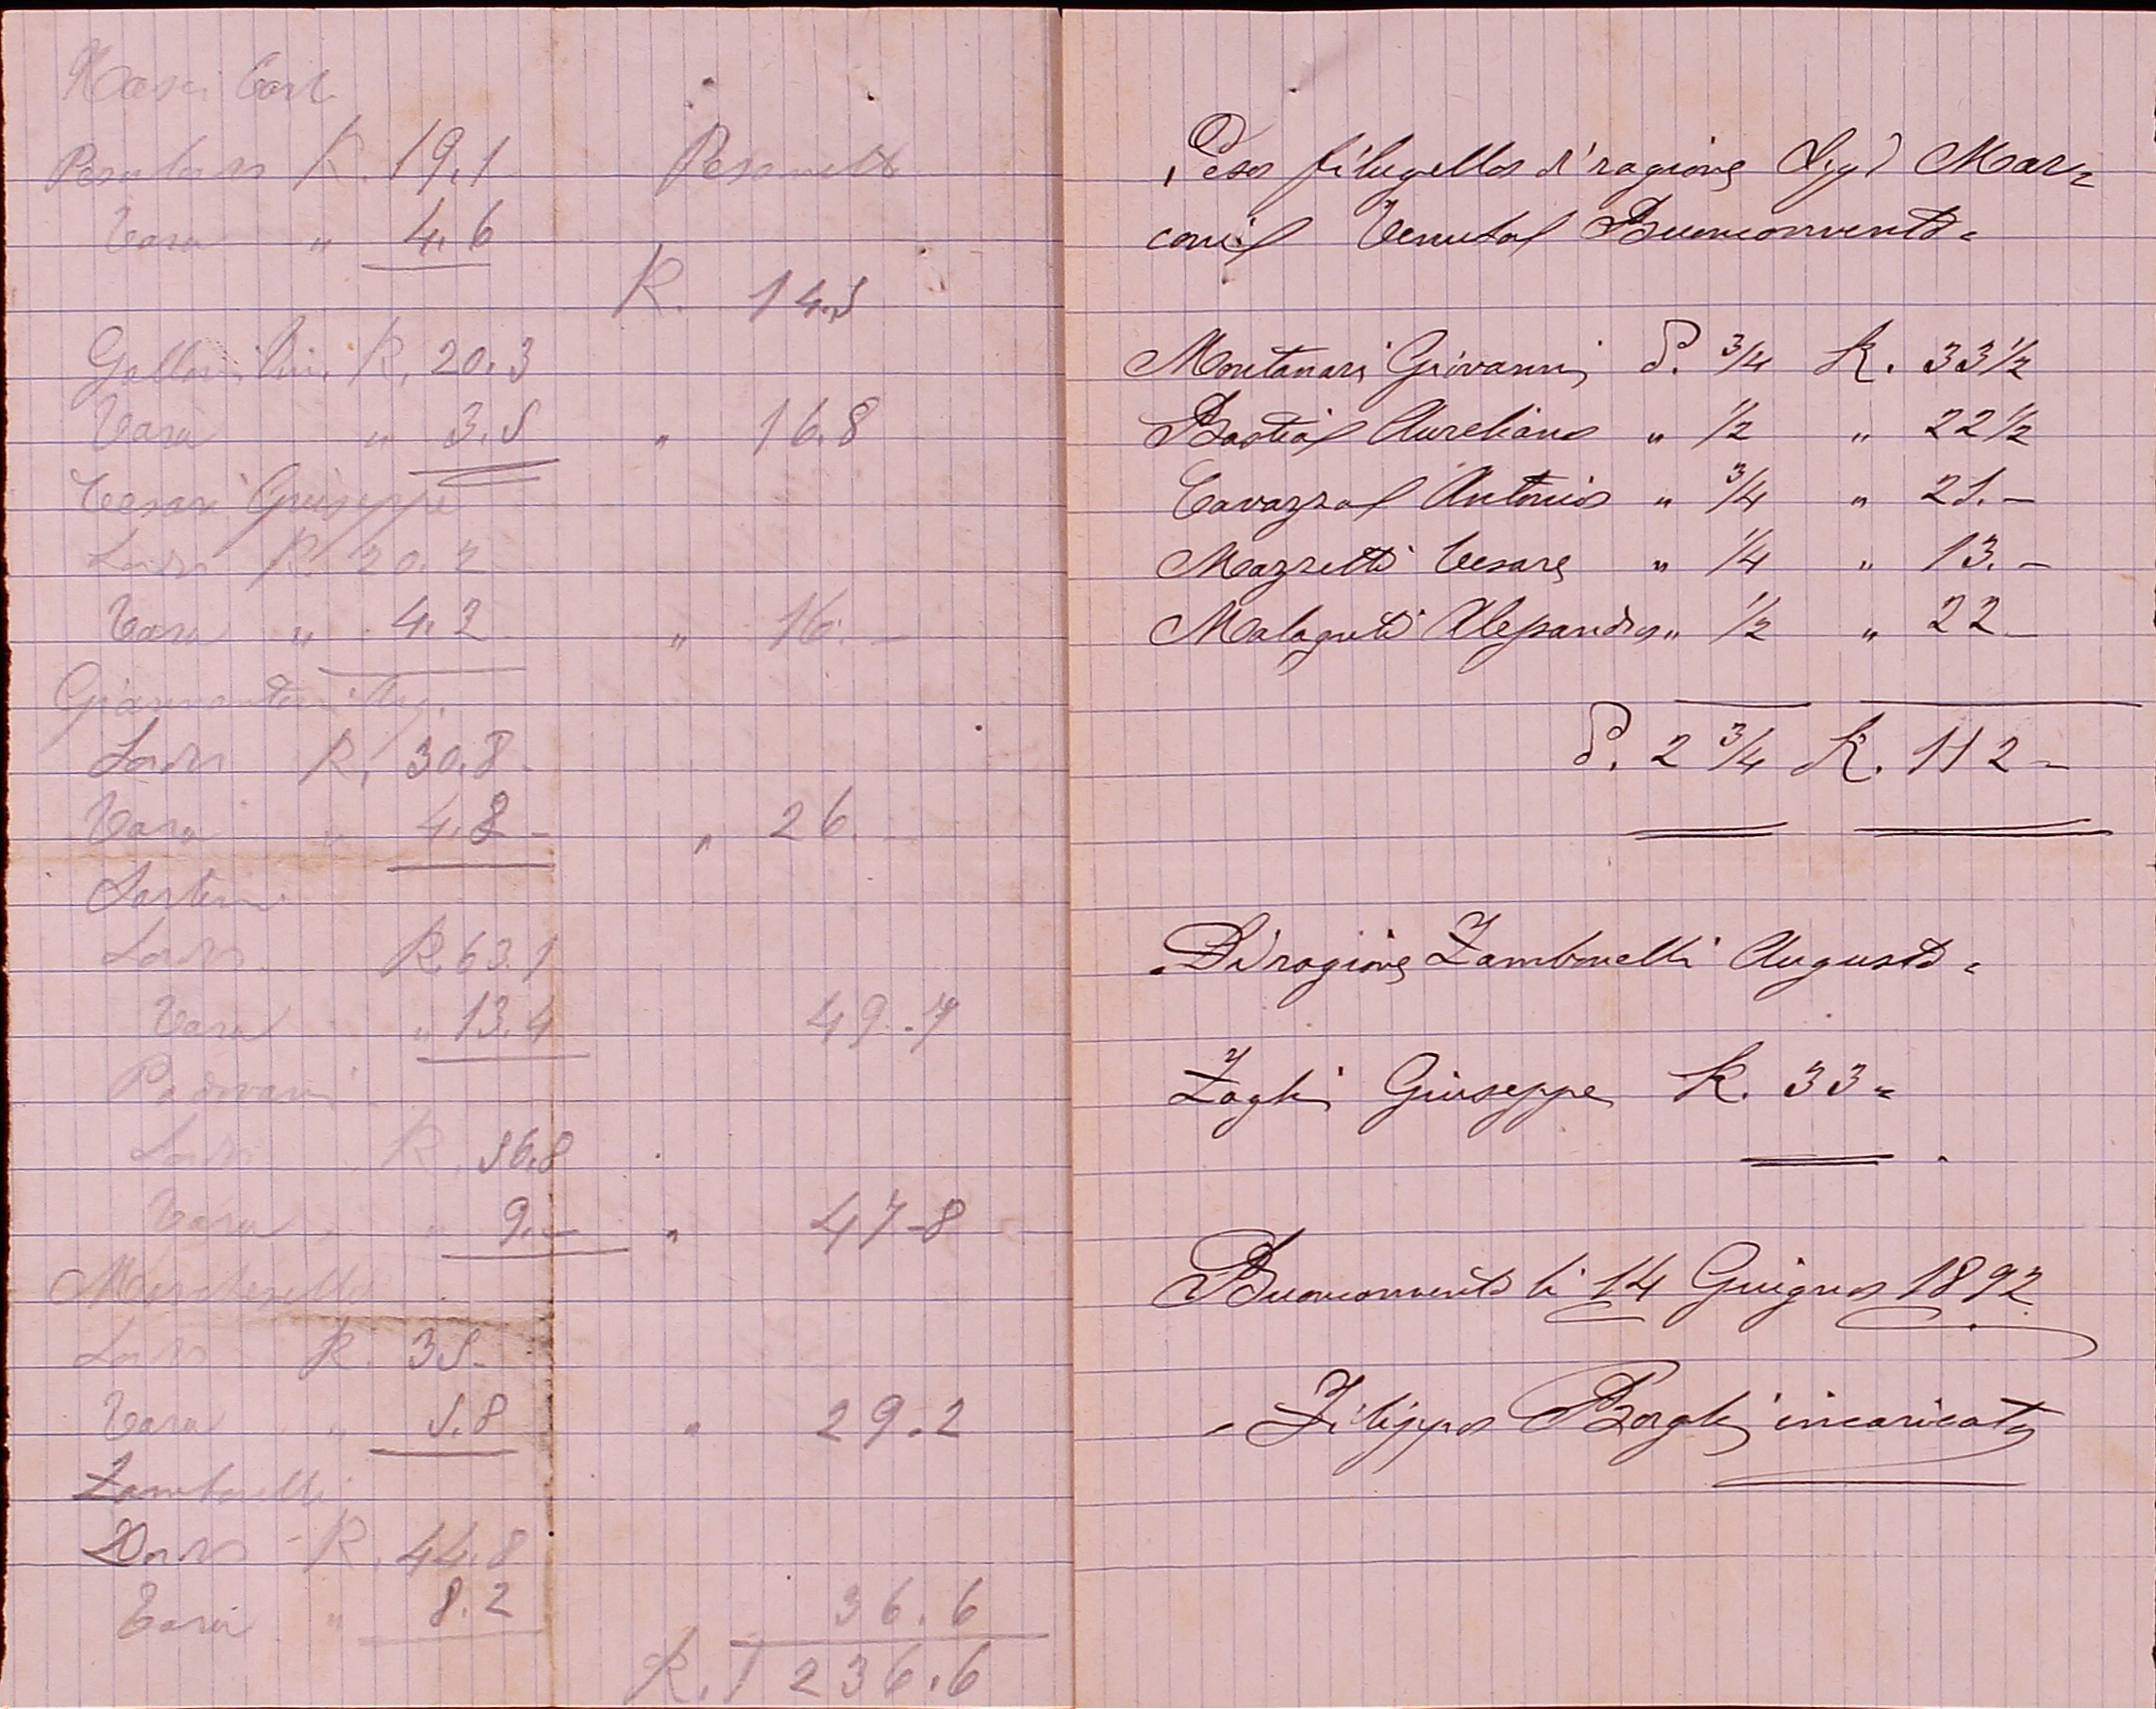 Peso lordo K. 19.1 Peso netto
Tara " 4.6
K. 14.5
K. 20.3
Tara " 3.5 " 16.8
Cesari Giuseppe
Lordo K. 20.2
Tara " 4.2 " 16. –
Lordo K. 30.8 –
Tara " 4.8 – " 26. –
Lordo K. 63.1
Tara " 13.4 49.7
Padovani
Lordo K. 56.8
Tara " 9. – " 47–8
Lordo K. 35 –
Tara " 5.8 " 29.2
Zambonelli
Lordo K. 44.8
Tara " 8.2 36.6
K. 236.6
Peso filugello di ragione Sig. Mar=
coni Tenuta Buonconvento =
Montanari Giovanni S. 3/4 K. 33 1/2
Bastia Aureliano " 1/2 " 22 1/2
Cavazza Antonio " 3/4 " 21. –
Mazzetti Cesare " 1/4 " 13. –
Malaguti Alessandro " 1/2 " 22 –
S. 2 3/4 K. 112 –
Di ragione Zambonelli Augusto =
Zaghi Giuseppe K. 33 =
Buonconvento li 14 Giugno 1892
Filippo Borghi incaricato